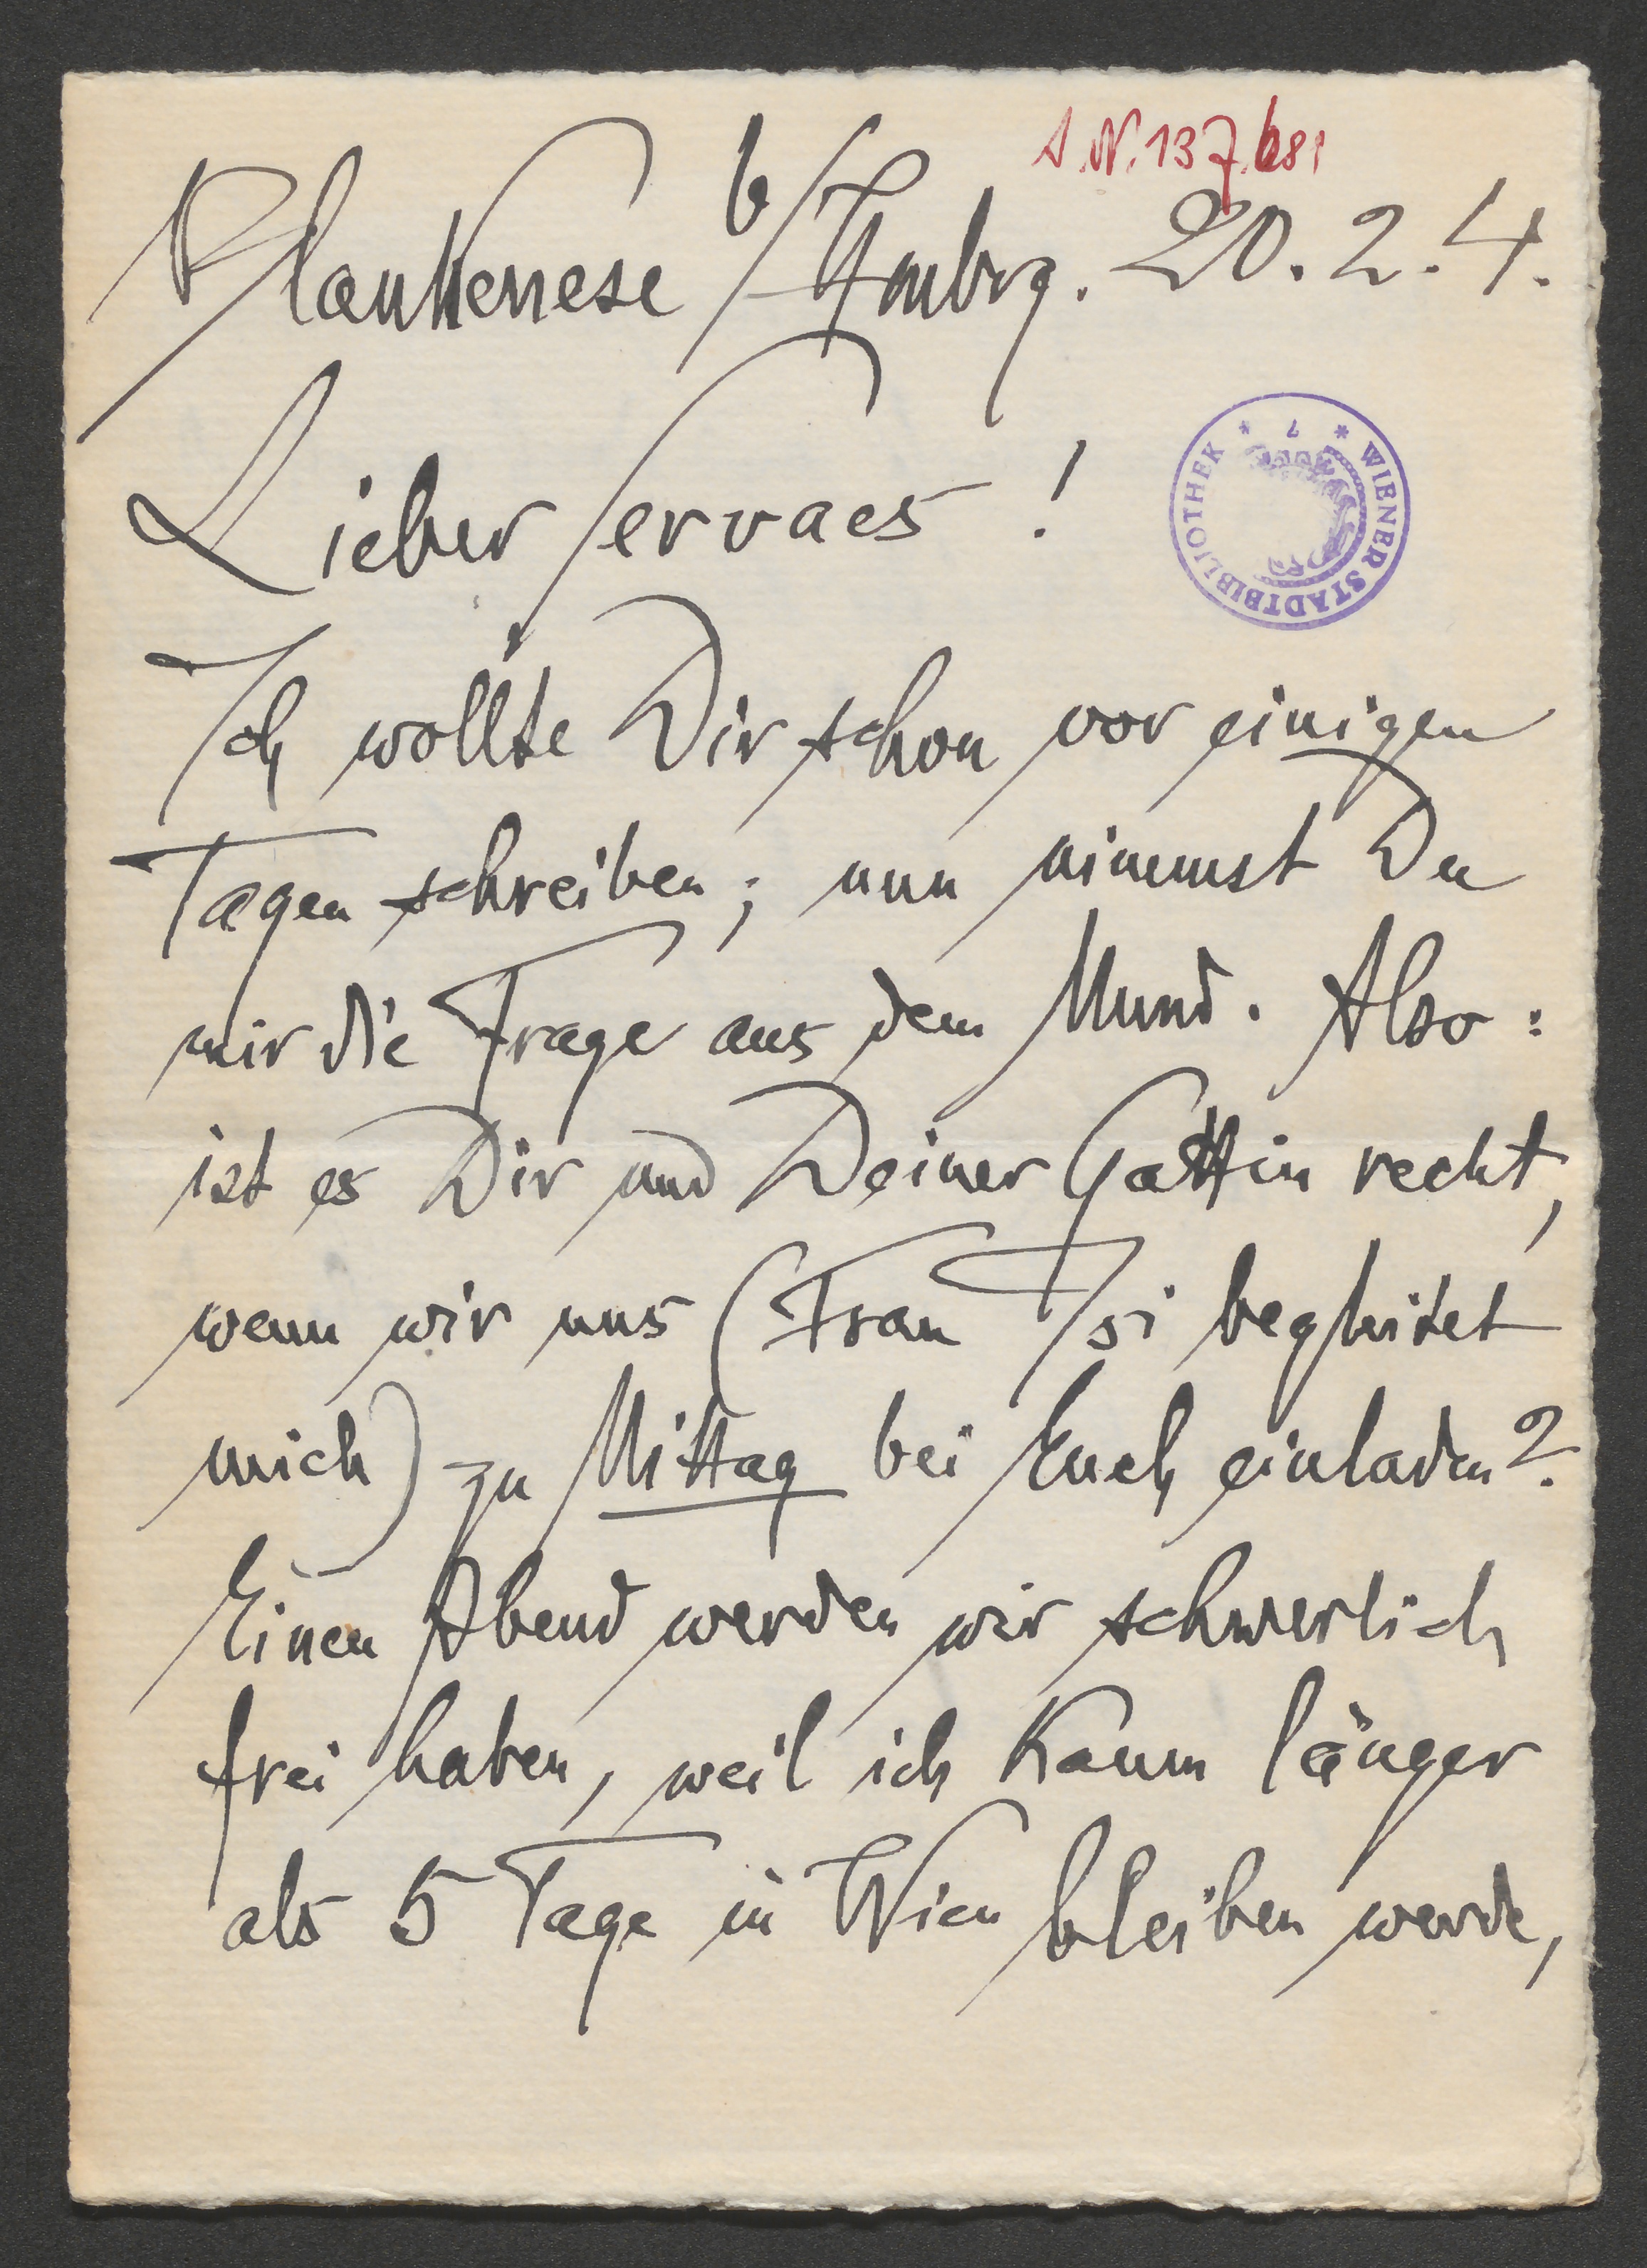 I.N. 137.681
Blankenese b/Hmbrg. 20.2.4.
Lieber Servaes!
* WIENER STADTBIBLIOTHEK * 7
Ich wollte Dir schon vor einigen
Tagen schreiben; nun nimmst Du
mir die Frage aus dem Mund. Also:
ist es Dir und Deiner Gattin recht,
wenn wir uns (Frau Isi begleitet
mich) zu Mittag bei Euch einladen?
Einen Abend werden wir schwerlich
frei haben, weil ich kaum länger
als 5 Tage in Wien bleiben werde,